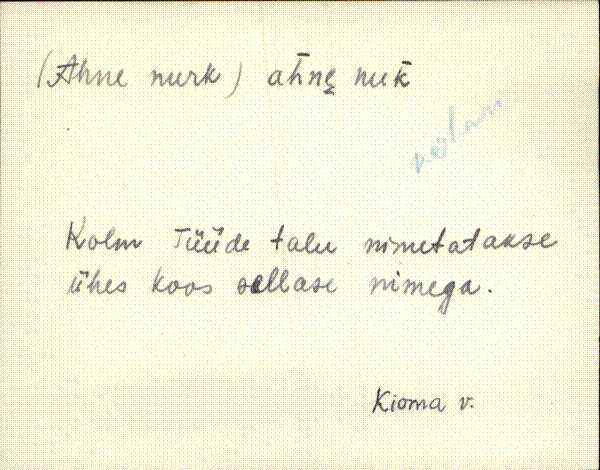 (Ahne nurk) ah̄nę nuk̄
Kolm Tüüde talu nimetatakse
ühes koos sellase nimega.
Kioma v.